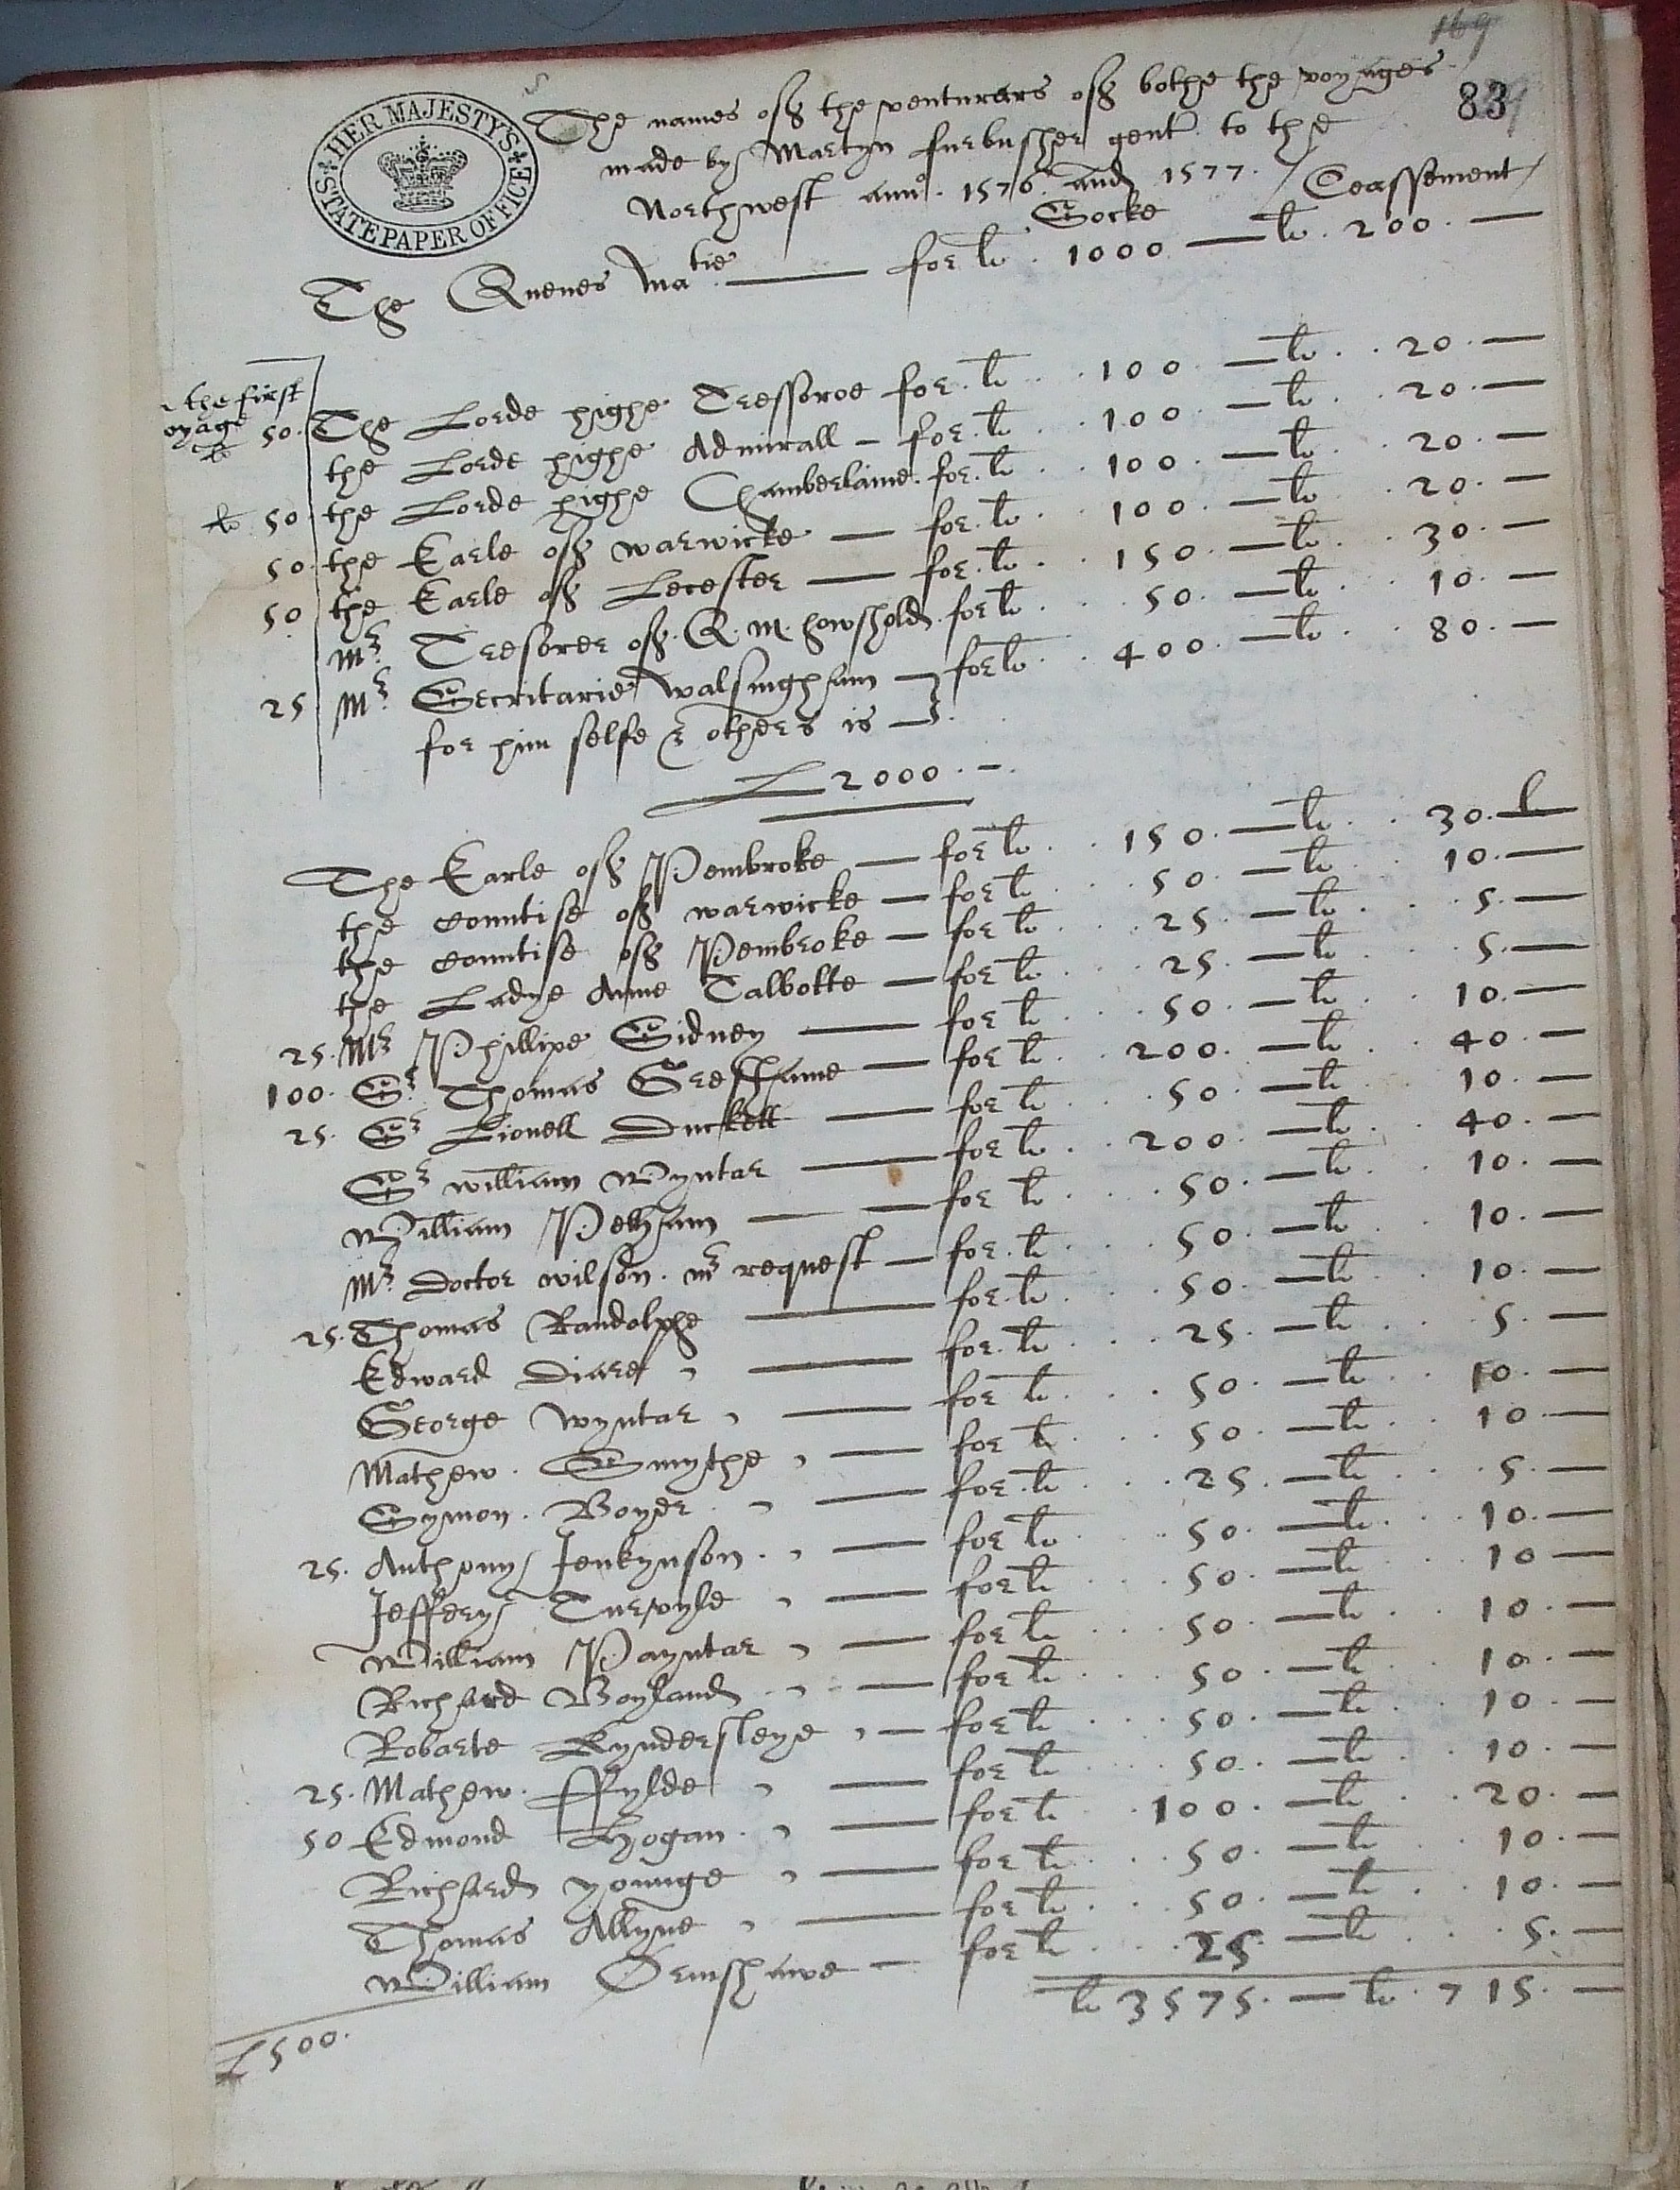 169
83
HER MAJESTY'S STATE PAPER OFFICE
The names off the venturars off bothe the voyages
made by Martyn Furbusher gent to the
Northwest anno. 1576. and 1577.
Stocke Seassement
The Quenes Matie for li . 1000 li . 200 .
the first
voyage
li 50. The Lorde highe Tressoror for . li . . 100 . li . . 20 .
the Lorde highe Admirall for . li . . 100 . li . . 20 .
li 50 the Lorde highe Chamberlaine . for . li . . 100 . li . . 20 .
50. the Earle off warwicke for . li . . 100 . li . . 20 .
50 the Earle off Lecester for . li . . 150 . li . . 30 .
Mr Tresorer off . Q . M . howshold . for li . . 50 . li . . 10 .
25 Mr Secritarie walsingham for li . . 400 . li . . 80 .
for him selfe & others is
£ 2000 .
The Earle off Pembroke for li . . 150 . li . . 30 . li
the countise off warwicke for li . . 50 . li . . 10 .
the countise off Pembroke for li . . 25 . li . . 5 .
the Ladye Anne Talbotte for li . . 25 . li . . 5 .
25. Mr Phillipe Sidney for li . . 50 . li . . 10 .
100. Sr Thomas Gresshame for li . . 200 . li . . 40 .
25. Sr Lionell Duckett for li . . 50 . li . . 10 .
Sr william Wyntar for li . . 200 . li . . 40 .
William Pelham for li . . 50 . li . . 10 .
Mr Doctor wilson . mr request for . li . . 50 . li . . 10 .
25. Thomas Randolphe for . li . . 50 . li . . 10 .
Edward Diare for . li . . 25 . li . . 5 .
George Wyntar for li . . 50 . li . . 10 .
Mathew . Smythe for li . . 50 . li . . 10 .
Symon . Boyer for . li . . 25 . li . . 5 .
25. Anthony Jenkynson . for li . . 50 . li . . 10 .
Jeffery Turvyle for li . . 50 . li . . 10
William Payntar for li . . 50 . li . . 10 .
Richard Boyland for li . . 50 . li . . 10 .
Robarte Kyndersleye for li . . 50 . li . . 10 .
25. Mathew . Ffylde for li . . 50 . li . . 10 .
50 Edmond Hogan . for li . . 100 . li . . 20 .
Richard younge for li . . 50 . li . . 10 .
Thomas Allyne for li . . 50 . li . . 10 .
William Ormshawe for li . . 25 . li . . 5 .
li 3575 . li . 715 .
£ 500 .